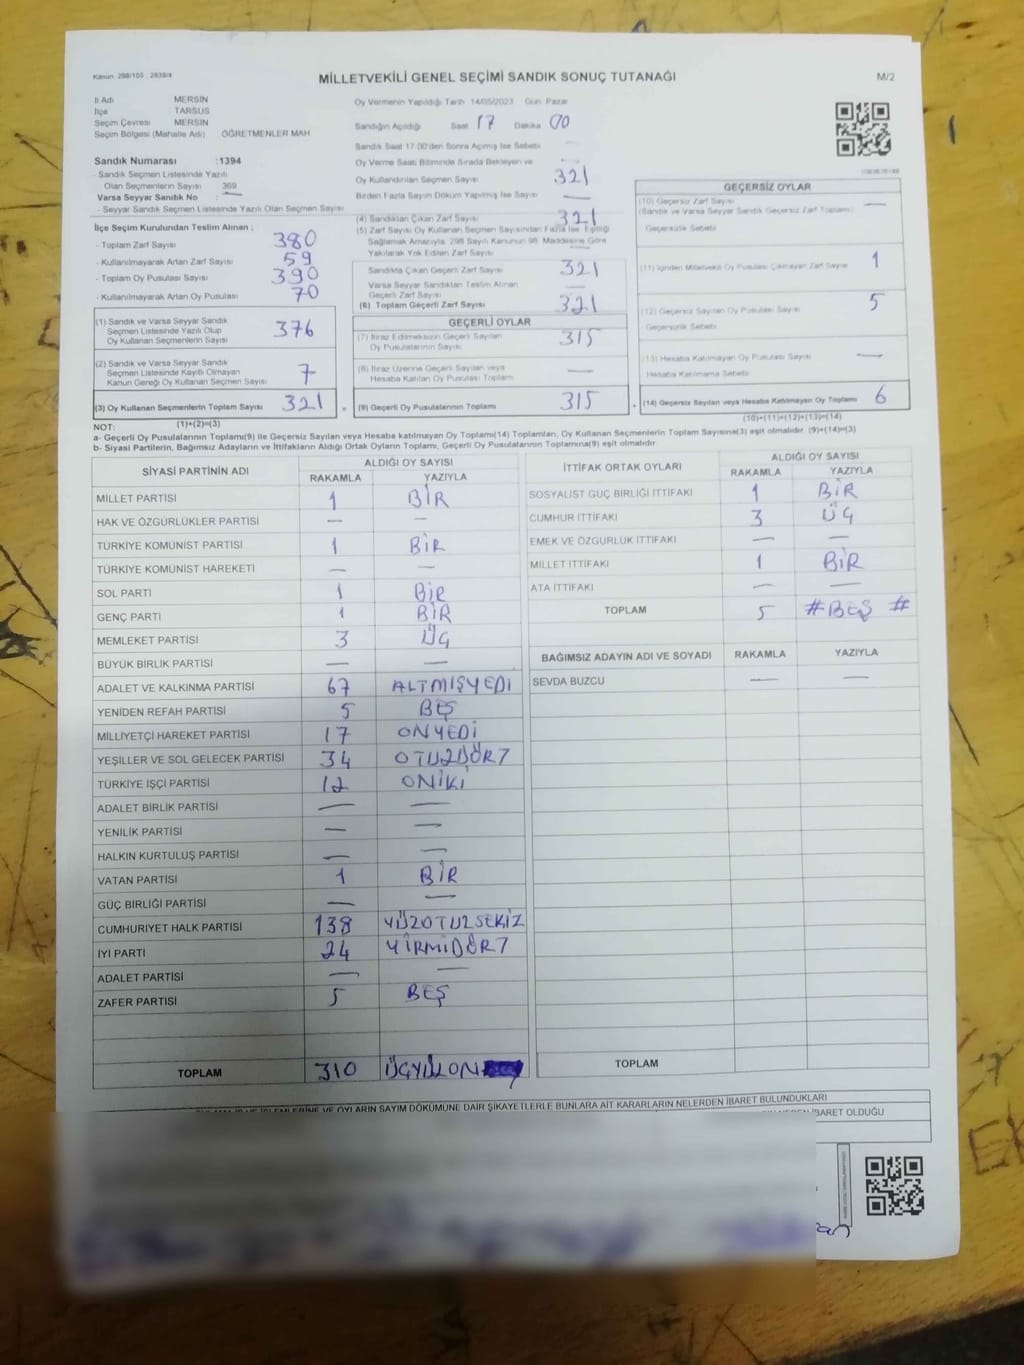 Kanun: 298/105 , 2839/4
MİLLETVEKİLİ GENEL SEÇİMİ SANDIK SONUÇ TUTANAĞI
M/2
İl Adı MERSİN
İlçe TARSUS
Seçim Çevresi MERSİN
Seçim Bölgesi (Mahalle Adı) ÖĞRETMENLER MAH
Sandık Numarası :1394
- Sandık Seçmen Listesinde Yazılı
Olan Seçmenlerin Sayısı 369
Varsa Seyyar Sandık No —
- Seyyar Sandık Seçmen Listesinde Yazılı Olan Seçmen Sayısı
İlçe Seçim Kurulundan Teslim Alınan ;
- Toplam Zarf Sayısı 380
- Kullanılmayarak Artan Zarf Sayısı 59
- Toplam Oy Pusulası Sayısı 390
- Kullanılmayarak Artan Oy Pusulası 70
(1) Sandık ve Varsa Seyyar Sandık
Seçmen Listesinde Yazılı Olup
Oy Kullanan Seçmenlerin Sayısı 376
(2) Sandık ve Varsa Seyyar Sandık
Seçmen Listesinde Kayıtlı Olmayan
Kanun Gereği Oy Kullanan Seçmen Sayısı 7
(3) Oy Kullanan Seçmenlerin Toplam Sayısı 321
(1)+(2)=(3)
Oy Vermenin Yapıldığı Tarih 14/05/2023 Gün Pazar
Sandığın Açıldığı Saat 17 Dakika 00
Sandık Saat 17.00'den Sonra Açılmış İse Sebebi —
Oy Verme Saati Bitiminde Sırada Bekleyen ve
Oy Kullandırılan Seçmen Sayısı 321
Birden Fazla Sayım Döküm Yapılmış İse Sayısı —
(4) Sandıktan Çıkan Zarf Sayısı 321
(5) Zarf Sayısı Oy Kullanan Seçmen Sayısından Fazla İse Eşitliği
Sağlamak Amacıyla, 298 Sayılı Kanunun 98. Maddesine Göre
Yakılarak Yok Edilen Zarf Sayısı
Sandıkta Çıkan Geçerli Zarf Sayısı 321
Varsa Seyyar Sandıktan Teslim Alınan
Geçerli Zarf Sayısı —
(6) Toplam Geçerli Zarf Sayısı 321
GEÇERLİ OYLAR
(7) İtiraz Edilmeksizin Geçerli Sayılan
Oy Pusulalarının Sayısı 315
(8) İtiraz Üzerine Geçerli Sayılan veya
Hesaba Katılan Oy Pusulası Toplamı —
(9) Geçerli Oy Pusulalarının Toplamı 315
GEÇERSİZ OYLAR
(10) Geçersiz Zarf Sayısı —
(Sandık ve Varsa Seyyar Sandık Geçersiz Zarf Toplamı)
Geçersizlik Sebebi
(11) İçinden Milletvekili Oy Pusulası Çıkmayan Zarf Sayısı 1
(12) Geçersiz Sayılan Oy Pusulası Sayısı 5
Geçersizlik Sebebi
(13) Hesaba Katılmayan Oy Pusulası Sayısı —
Hesaba Katılmama Sebebi
(14) Geçersiz Sayılan veya Hesaba Katılmayan Oy Toplamı 6
(10)+(11)+(12)+(13)=(14)
NOT:
a- Geçerli Oy Pusulaları Toplamı(9) ile Geçersiz Sayılan veya Hesaba katılmayan Oy Toplamı(14) Toplamları, Oy Kullanan Seçmenlerin Toplam Sayısına(3) eşit olmalıdır. (9)+(14)=(3)
b- Siyasi Partilerin, Bağımsız Adayların ve İttifakların Aldığı Ortak Oyların Toplamı, Geçerli Oy Pusulalarının Toplamına(9) eşit olmalıdır
SİYASİ PARTİNİN ADI ALDIĞI OY SAYISI
RAKAMLA YAZIYLA
MİLLET PARTİSİ 1 BİR
HAK VE ÖZGÜRLÜKLER PARTİSİ — —
TÜRKİYE KOMÜNİST PARTİSİ 1 BİR
TÜRKİYE KOMÜNİST HAREKETİ — —
SOL PARTİ 1 BİR
GENÇ PARTİ 1 BİR
MEMLEKET PARTİSİ 3 ÜÇ
BÜYÜK BİRLİK PARTİSİ — —
ADALET VE KALKINMA PARTİSİ 67 ALTMIŞYEDİ
YENİDEN REFAH PARTİSİ 5 BEŞ
MİLLİYETÇİ HAREKET PARTİSİ 17 ONYEDİ
YEŞİLLER VE SOL GELECEK PARTİSİ 34 OTUZDÖRT
TÜRKİYE İŞÇİ PARTİSİ 12 ONİKİ
ADALET BİRLİK PARTİSİ — —
YENİLİK PARTİSİ — —
HALKIN KURTULUŞ PARTİSİ — —
VATAN PARTİSİ 1 BİR
GÜÇ BİRLİĞİ PARTİSİ — —
CUMHURİYET HALK PARTİSİ 138 YÜZOTUZSEKİZ
İYİ PARTİ 24 YİRMİDÖRT
ADALET PARTİSİ — —
ZAFER PARTİSİ 5 BEŞ
TOPLAM 310 ÜÇYÜZON
İTTİFAK ORTAK OYLARI ALDIĞI OY SAYISI
RAKAMLA YAZIYLA
SOSYALİST GÜÇ BİRLİĞİ İTTİFAKI 1 BİR
CUMHUR İTTİFAKI 3 ÜÇ
EMEK VE ÖZGÜRLÜK İTTİFAKI — —
MİLLET İTTİFAKI 1 BİR
ATA İTTİFAKI — —
TOPLAM 5 # BEŞ #
BAĞIMSIZ ADAYIN ADI VE SOYADI RAKAMLA YAZIYLA
SEVDA BUZCU — —
TOPLAM
İŞLEMLERİNE VE OYLARIN SAYIM DÖKÜMÜNE DAİR ŞİKAYETLERLE BUNLARA AİT KARARLARIN NELERDEN İBARET BULUNDUKLARI
İBARET OLDUĞU